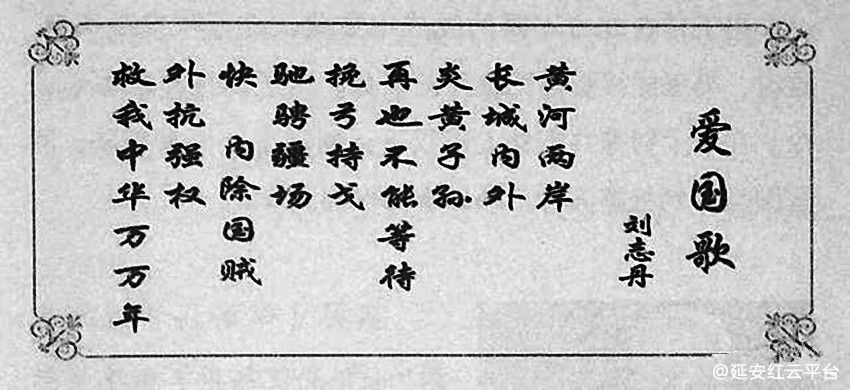 爱国歌
刘志丹
黄河两岸
长城内外
炎黄子孙
再也不能等待
挽弓持戈
驰骋疆场
快 内除国贼
外抗强权
救我中华万万年
@延安红云平台